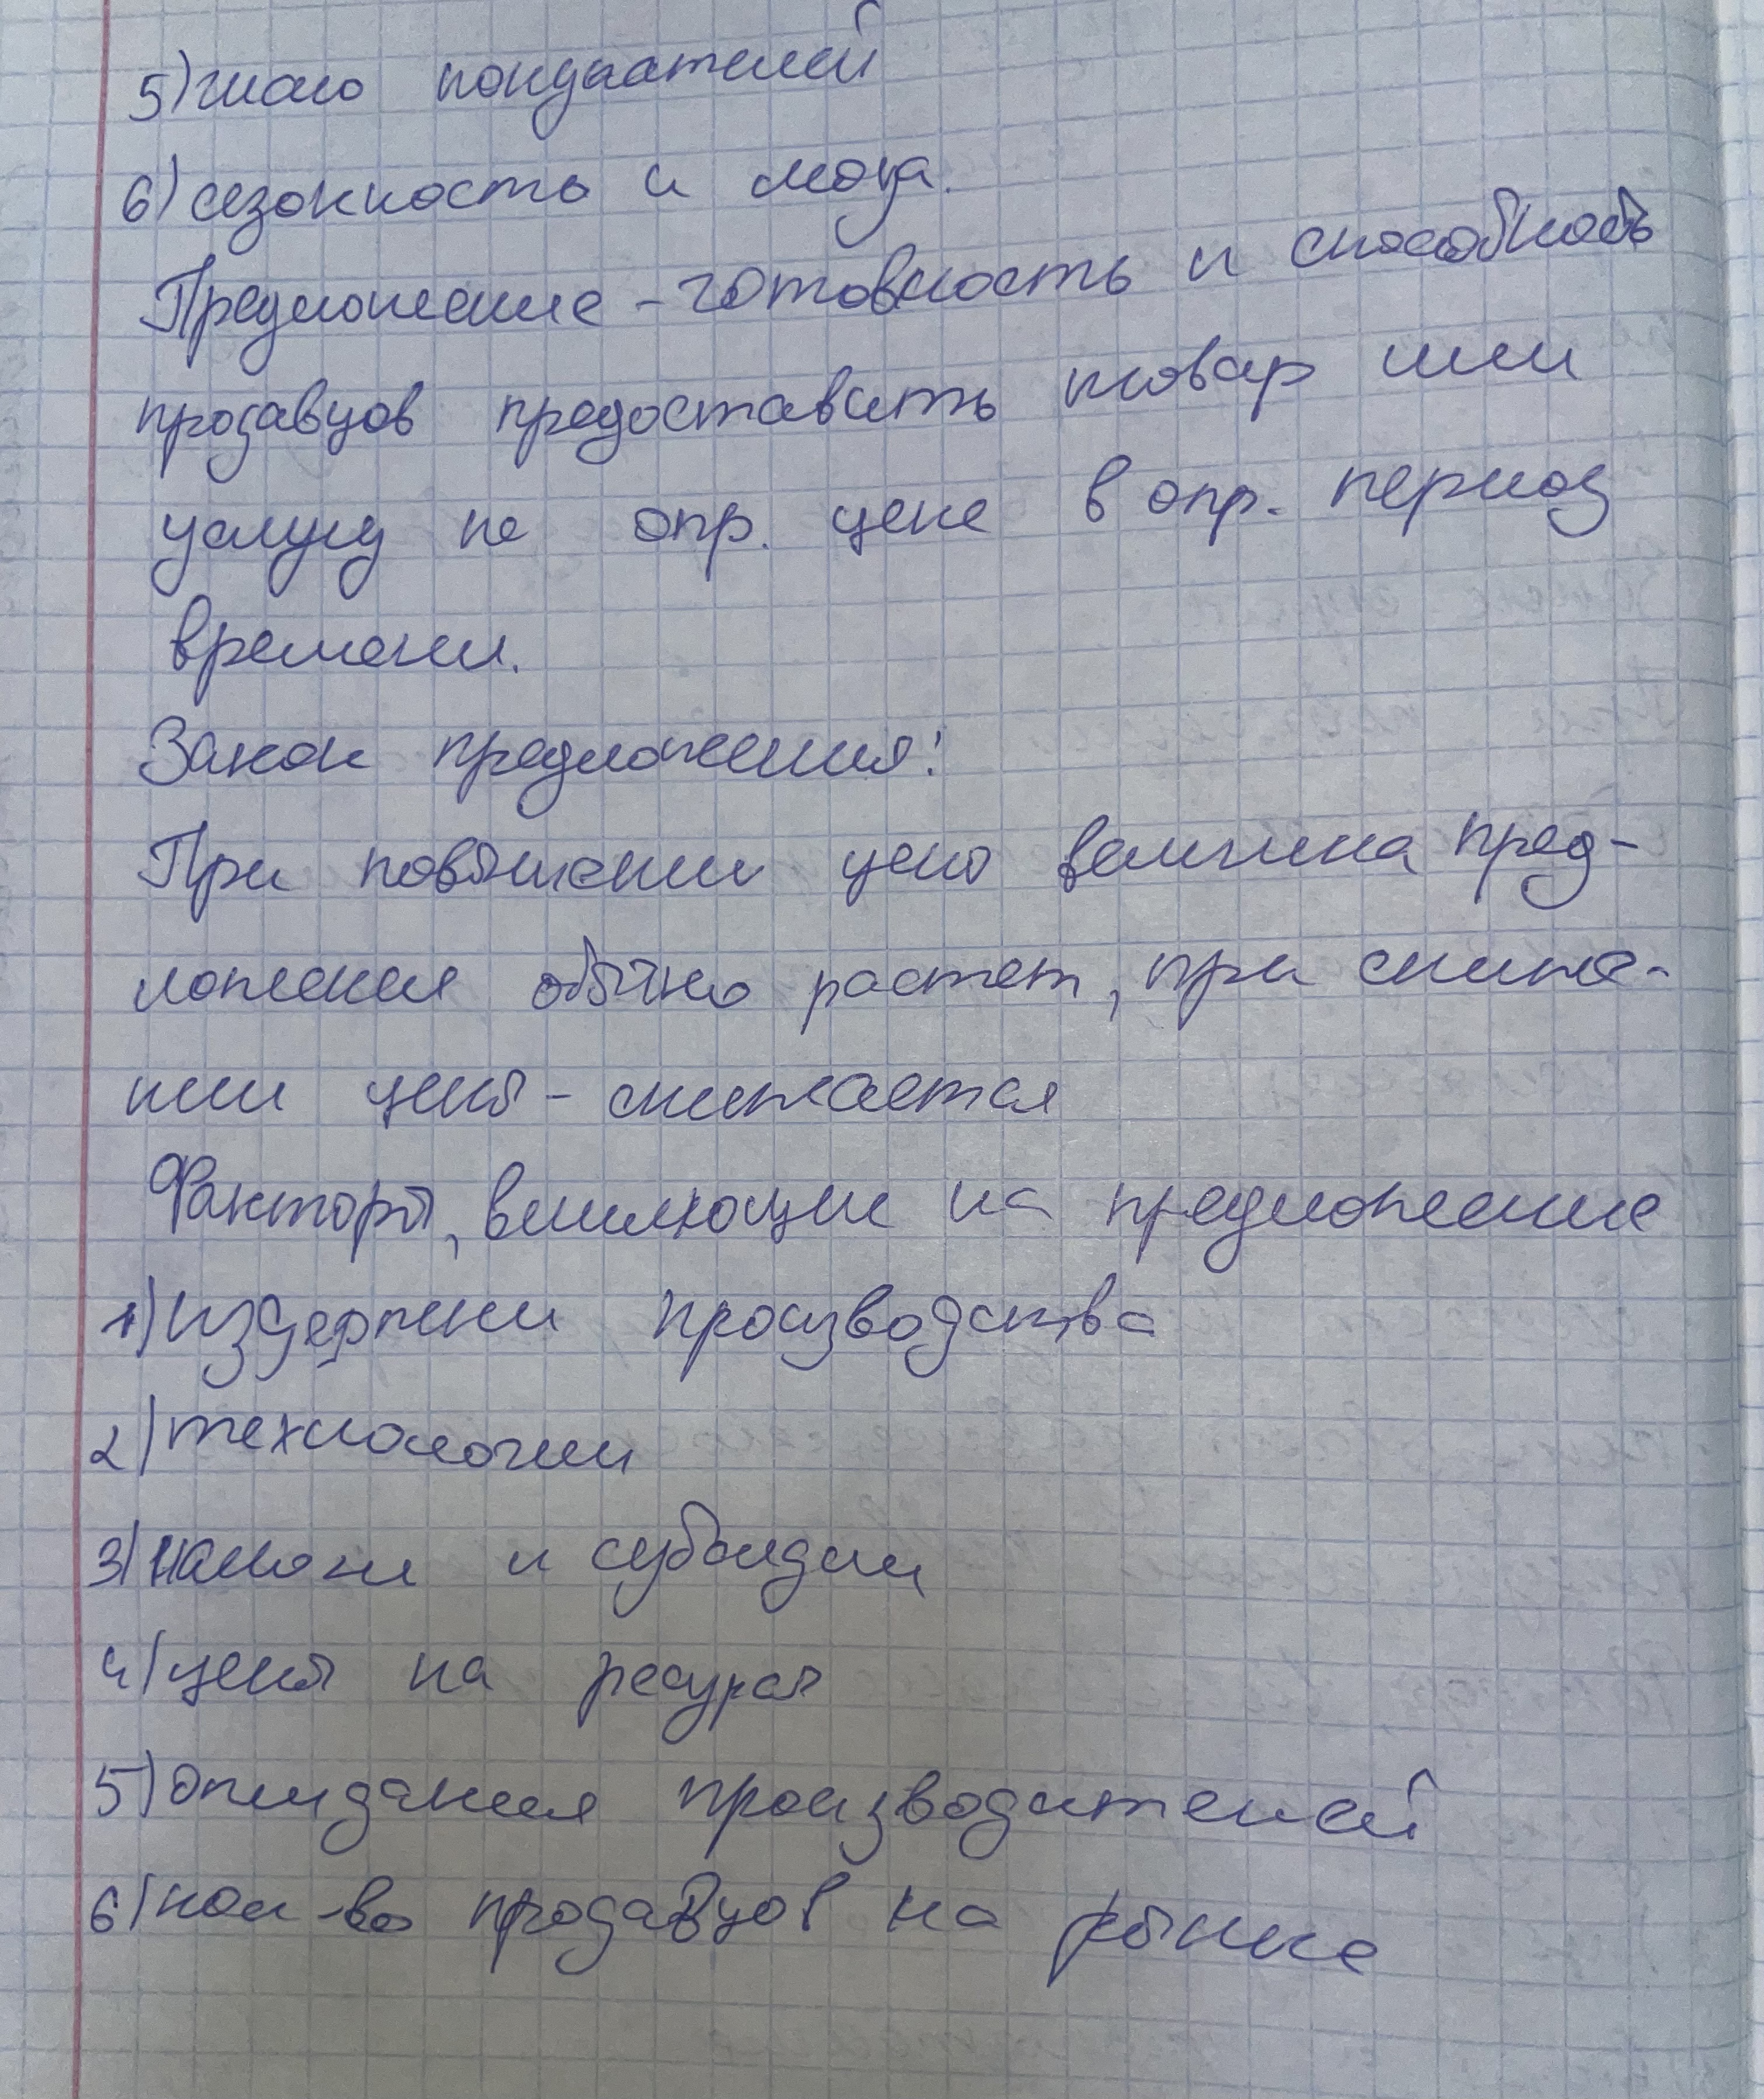 5) число покупателей
6) сезонность и мода.
Предложение - готовность и способность
продавцов предоставить товар или
услугу по опр. цене в опр. период
времени.
Закон предложения:
При повышении цены величина пред-
ложения обычно растет, при сниже-
нии цены - снижается
Факторы, влияющие на предложение
1) издержки производства
2) технологии
3) налоги и субсидии
4) цены на ресурсы
5) ожидания производителей
6) кол-во продавцов на рынке